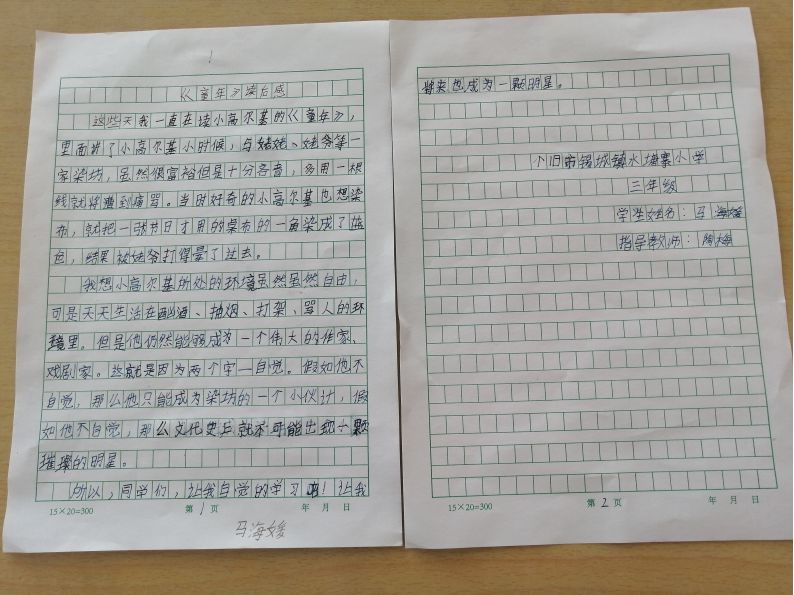 《童年》读后感
这些天我一直在读小高尔基的《童年》，
里面讲了小高尔基小时候，与姥姥、姥爷等一
家染坊，虽然很富裕但是十分吝啬，多用一根
线就将遭到痛骂。当时好奇的小高尔基也想染
布，就把一张节日才用的桌布的一角染成了蓝
色，结果被姥爷打得晕了过去。
我想小高尔基所处的环境虽然虽然自由，
可是天天生活在酗酒、抽烟、打架、骂人的环
境里。但是他仍然能够成为一个伟大的作家、
戏剧家。这就是因为两个字—自觉。假如他不
自觉，那么他只能成为染坊的一个小伙计，假
如他不自觉，那么文化史上就不可能出现一颗
璀璨的明星。
所以，同学们，让我自觉的学习啊！让我
15×20=300 第1页 年 月 日
马海媛
将来也成为一颗明星。
个旧市锡城镇水塘寨小学
三年级
学生姓名：马海媛
指导教师：陶梅
15×20=300 第2页 年 月 日